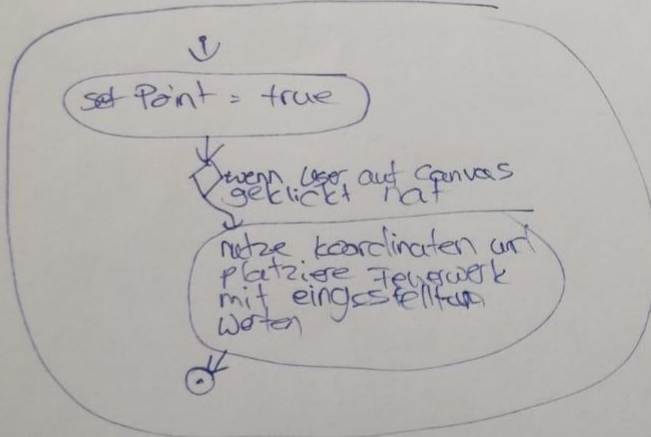 set Point = true
wenn User auf Canvas
geklickt hat
nutze koordinaten um
platziere Feuerwerk
mit eingestellten
Werten